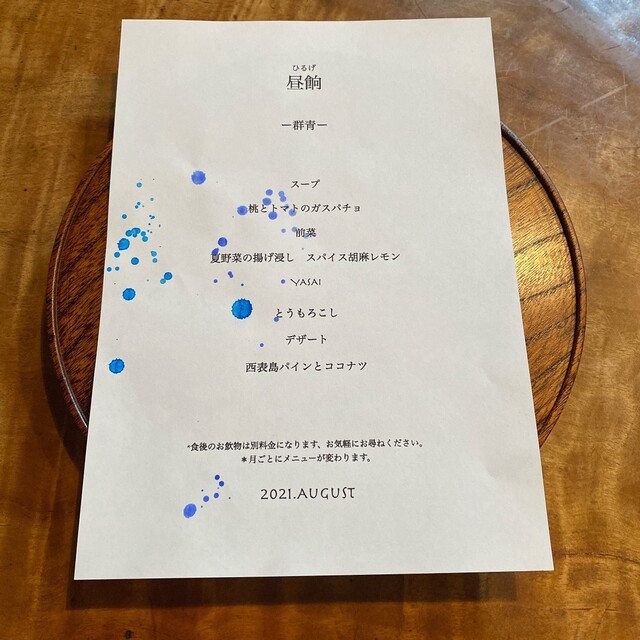 ひるげ
昼餉
ー群青ー
スープ
桃とトマトのガスパチョ
前菜
夏野菜の揚げ浸し　スパイス胡麻レモン
YASAI
とうもろこし
デザート
西表島パインとココナツ
*食後のお飲物は別料金になります、お気軽にお尋ねください。
＊月ごとにメニューが変わります。
2021.AUGUST